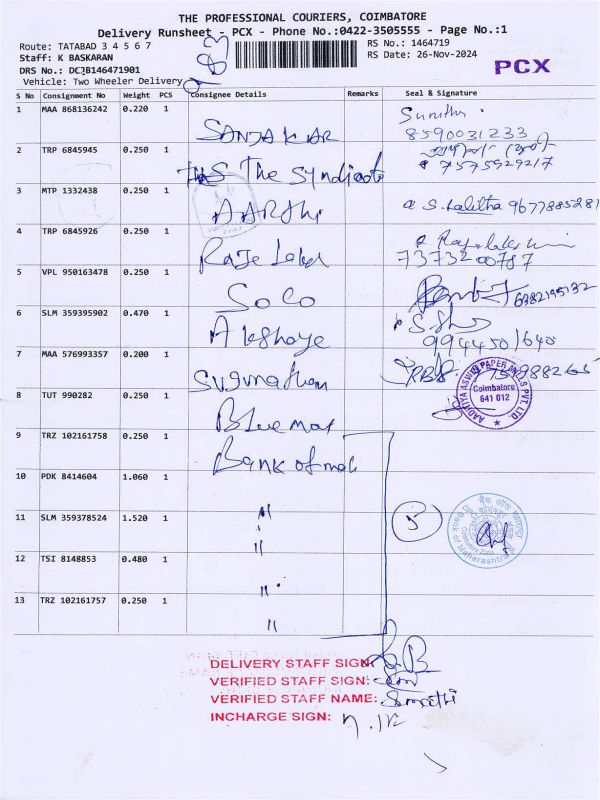 THE PROFESSIONAL COURIERS, COIMBATORE
Delivery Runsheet - PCX - Phone No.:0422-3505555 - Page No.:1
Route: TATABAD 3 4 5 6 7
RS No.: 1464719
Staff: K BASKARAN
RS Date: 26-Nov-2024
DRS No.: DC3B146471901
PCX
Vehicle: Two Wheeler Delivery
S No Consignment No Weight PCS Consignee Details Remarks Seal & Signature
1 MAA 868136242 0.220 1 SANJAKAR 8590031233
2 TRP 6845945 0.250 1 The Syndicate 7575929217
3 MTP 1332438 0.250 1 AARTHI S. Lalitha 9677885281
4 TRP 6845926 0.250 1 7373200787
5 VPL 950163478 0.250 1 SoLo 6382195132
6 SLM 359395902 0.470 1 Akshaye 9944501640
7 MAA 576993357 0.200 1
AADHITYA ASWIN PAPER MILLS PVT. LTD.
Coimbatore
641 012
8 TUT 990282 0.250 1 Blue
9 TRZ 102161758 0.250 1 Bank of mah
10 PDK 8414604 1.060 1 "
11 SLM 359378524 1.520 1 " 5
बैंक ऑफ महाराष्ट्र
Bank of Maharashtra
12 TSI 8148853 0.480 1 "
13 TRZ 102161757 0.250 1 "
DELIVERY STAFF SIGN:
VERIFIED STAFF SIGN:
VERIFIED STAFF NAME:
INCHARGE SIGN: